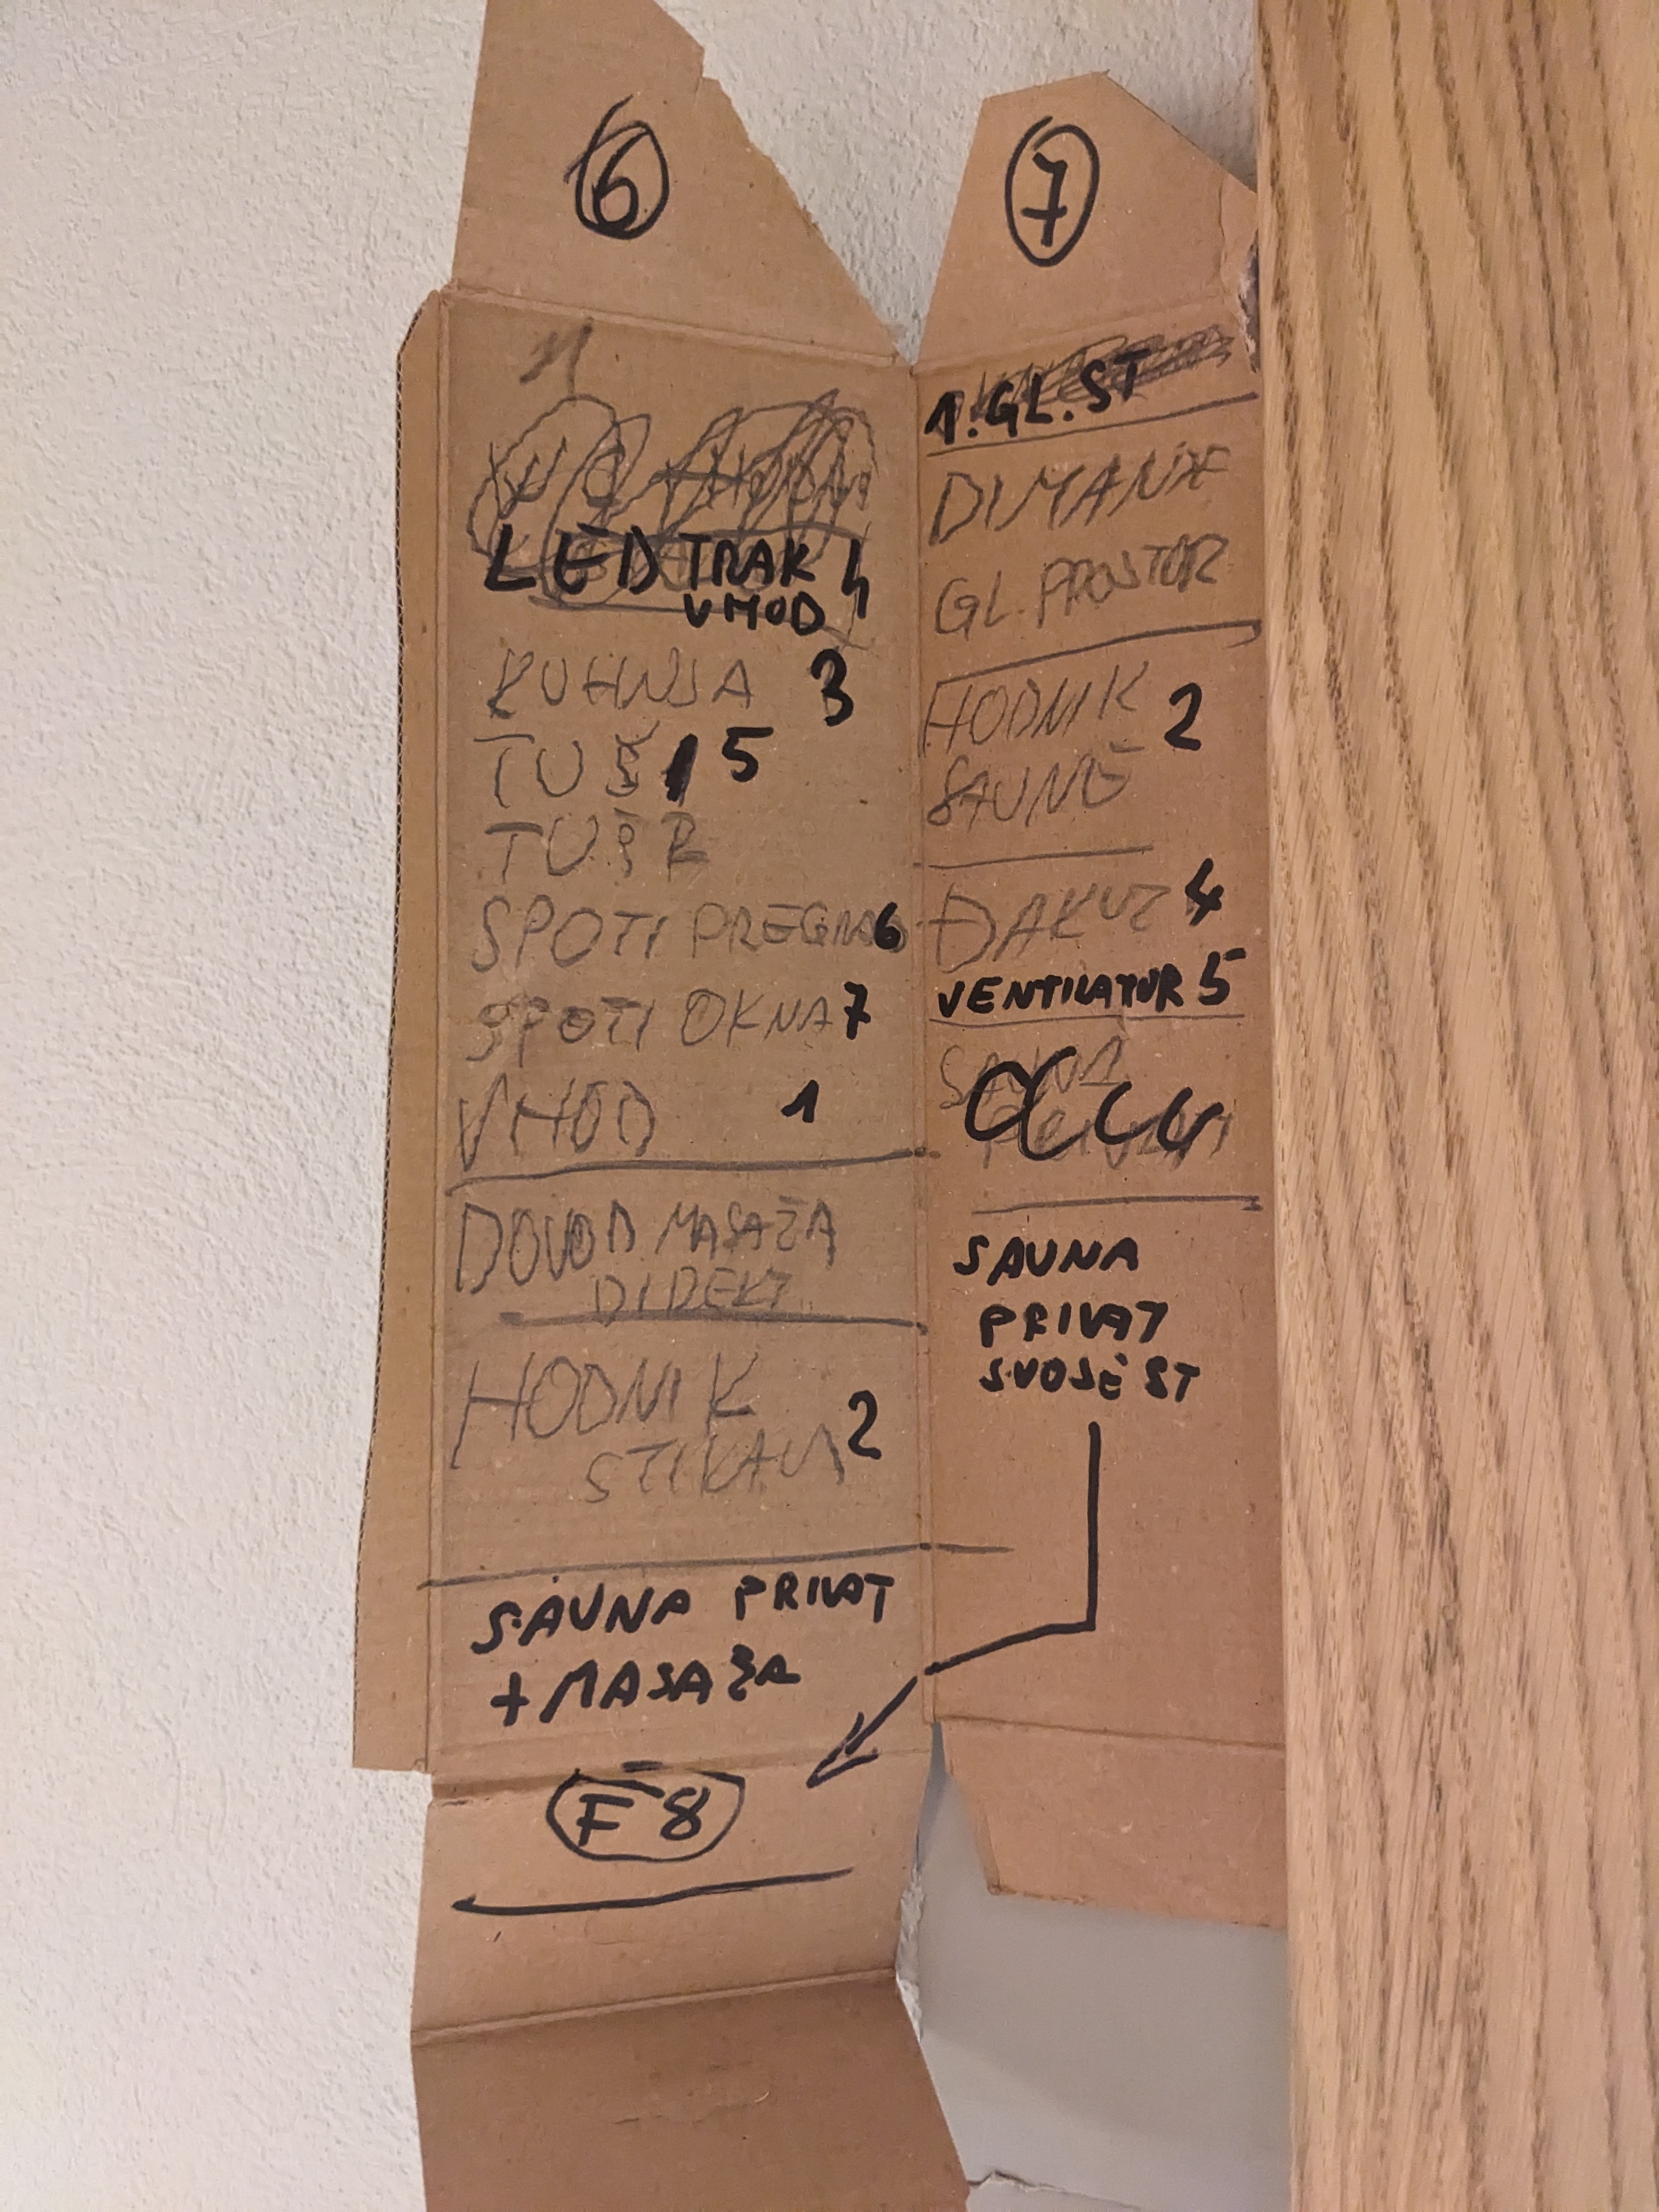 6
LED TRAK 4
VHOD
KUHNJA 3
TUŠ 1 5
TUŠ 2
SPOTI PREGRA 6
SPOTI OKNA 7
VHOD 1
DOVOD MASAŽA
DIREKT
HODNIK
STIKALA 2
SAUNA PRIVAT
+ MASAŽA
F8
7
1. GL. ST
DIMANJE
GL. PROSTOR
HODNIK 2
SAUNE
ĐAKUZ 4
VENTILATOR 5
SAUNA
SAUNA
PRIVAT
SVOJE ST